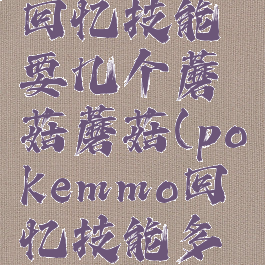 回忆技能
要几个蘑
菇蘑菇(po
kemmo回
忆技能多